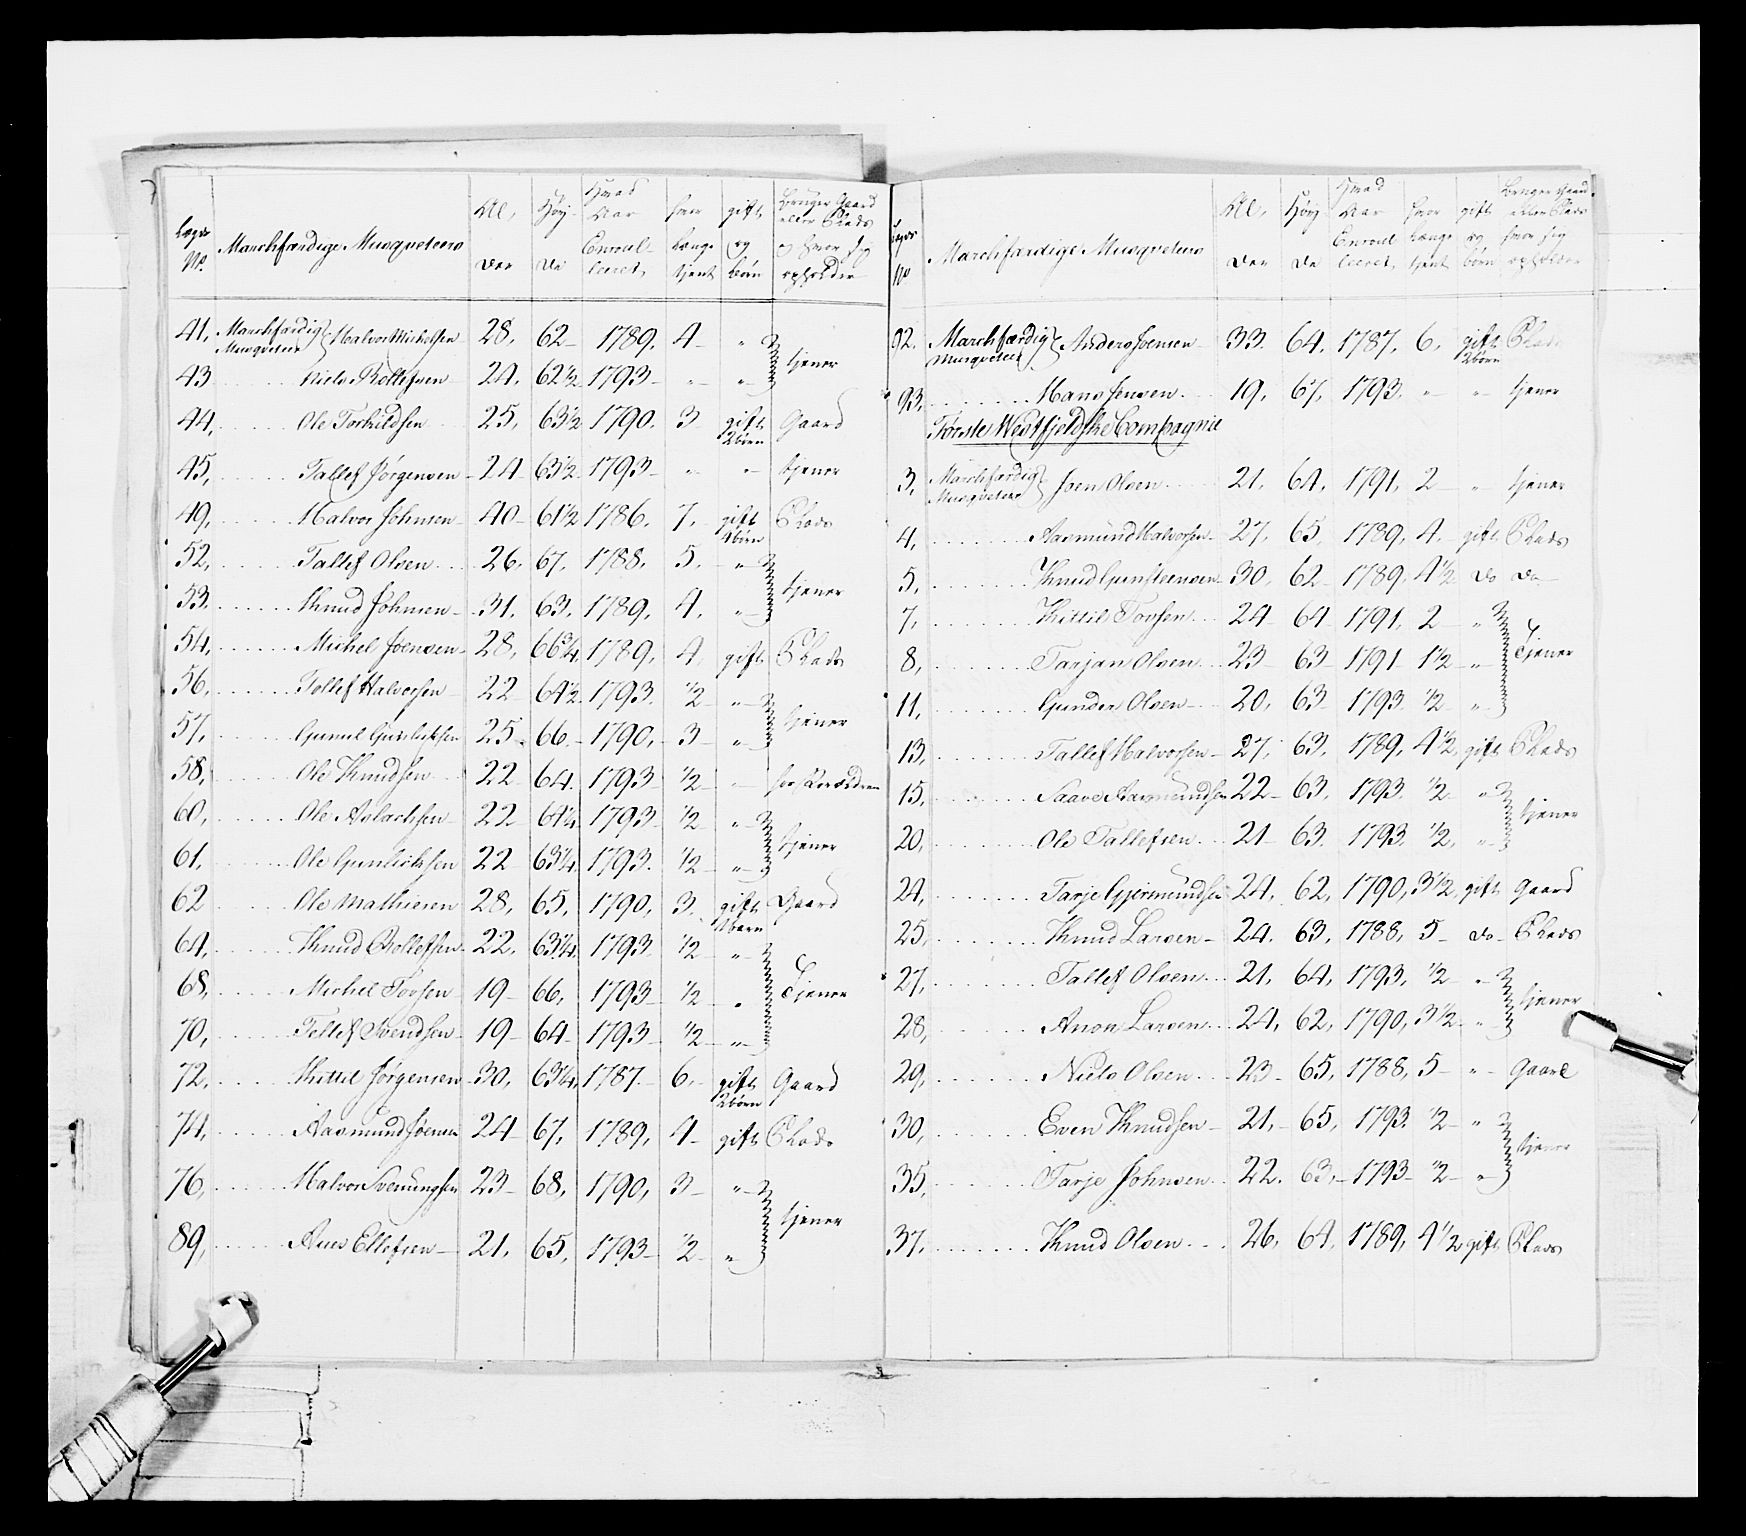 Lægs No. Marchfærdige Musqveteers Al, der Høy- de Hvad Aar Enroul- leeret, hvor længe tjent gift og børn Bruger Gaard eller Plads og hvor sig opholder
41, Marchfærdig Musqveteer Halvor Michelsen 28, 62 1789, 4 "
43 Niels Rollefsen 24, 62 1/2 1793 " " tjener
44, Ole Torkildsen 25, 63 1/2 1790, 3 gift 2 børn Gaard
45, Tallef Jørgensen 24 63 1/2 1793 " " tjener
49, Halvor Johnsen 40 61 1/2 1786, 7, gift 4 børn Plads
52, Tallef Olsen 26, 67, 1788, 5, "
53, Knud Johnsen 31, 63, 1789, 4, " tjener
54, Michel Joensen 28, 66 3/4, 1789, 4, gift Plads
56, Tollef Halvorsen 22 64 1/2 1793, 1/2 "
57, Gunul Gunlichsen 25, 66, 1790, 3 " tjener
58, Ole Knudsen 22 64, 1793 1/2 " hos Forældrene
60, Ole Aslachsen 22 64 1/4 1793 1/2 "
61, Ole Gunlichsen 22 63 1/4, 1793, 1/2 " tjener
62 Ole Mathiesen 28, 65, 1790, 3, gift 1 barn Gaard
64, Knud Rollefsen 22, 63 1/4, 1793 1/2 "
68, Michel Tovsen 19 66, 1793 1/2 " Tjener
70, Tollef Svendsen 19 64 1793 1/2 "
72, Kittil Jørgensen 30, 63 1/4, 1787 6, gift 2 børn Gaard
74, Aasmund Joensen 24 67, 1789, 4 gift Plads
76, Halvor Svenungsen 23 68, 1790, 3 "
89, Anes Ellefsen 21, 65, 1793 1/2 " tjener
Lægs No Marchfærdige Musqveteers Al, der Høy de Hvad Aar Enroul leeret, hvor længe tjent gift og børn Bruger Gaard eller Plads hvor sig opholder
92. Marchfærdig Musqveteer Anders Svensen 33 64, 1787, 6, gift 2 børn Plads
93, Hans Jensen 19, 67, 1793, " " tjener
Første Westfjeldske Compagnie
3, Marchfærdig Musqveteer Joen Olsen 21, 64, 1791, 2 " tjener
4, Aasmund Halvorsen 27, 65, 1789, 4, gift Plads
5, Knud Gunsteensen 30, 62 1789, 4 1/2 do do
7, Kittil Tovsen 24 64 1791, 2 "
8, Tarjan Olsen 23 63 1791 1 1/2 " Tjener
11, Gunder Olsen 20, 63 1793 1/2 "
13, Tallef Halvorsen 27, 63, 1789, 4 1/2, gift Plads
15, Saave Aasmundsen 22 63, 1793, 1/2 "
20, Ole Tallefsen 21 63, 1793, 1/2, " tjener
24, Tarje Gjermundsen 24, 62, 1790, 3 1/2, gift Gaard
25, Knud Larsen 24, 63, 1788, 5 do Plads
27, Tallef Olsen 21, 64, 1793, 1/2 "
28, Anon Larsen 24, 62, 1790, 3 1/2 " tjener
29, Niels Olsen 23 65, 1788, 5 " Gaard
30, Even Knudsen 21, 65, 1793, 1/2 "
35, Tarje Johnsen 22, 63, 1793 1/2 " tjener
37, Knud Olsen 26, 64, 1789, 4 1/2 gift Plads